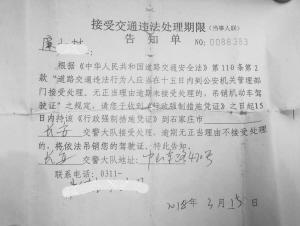 接受交通违法处理期限（当事人联）
告知单 NO 0088383
根据《中华人民共和国道路交通安全法》第110条第2
款“道路交通违法行为人应当在十五日内到公安机关管理部
门接受处理。无正当理由逾期未接受处理的，吊销机动车驾
驶证”之规定，请您于收到《行政强制措施凭证》之日起15
日内持该《行政强制措施凭证》到石家庄市
长安 交警大队接受处理。逾期无正当理由不接受处理
的，将依法吊销您的驾驶证。特此告知。
长安 交警大队地址：中山东路470号
联系电话：0311-
2018年3月15日